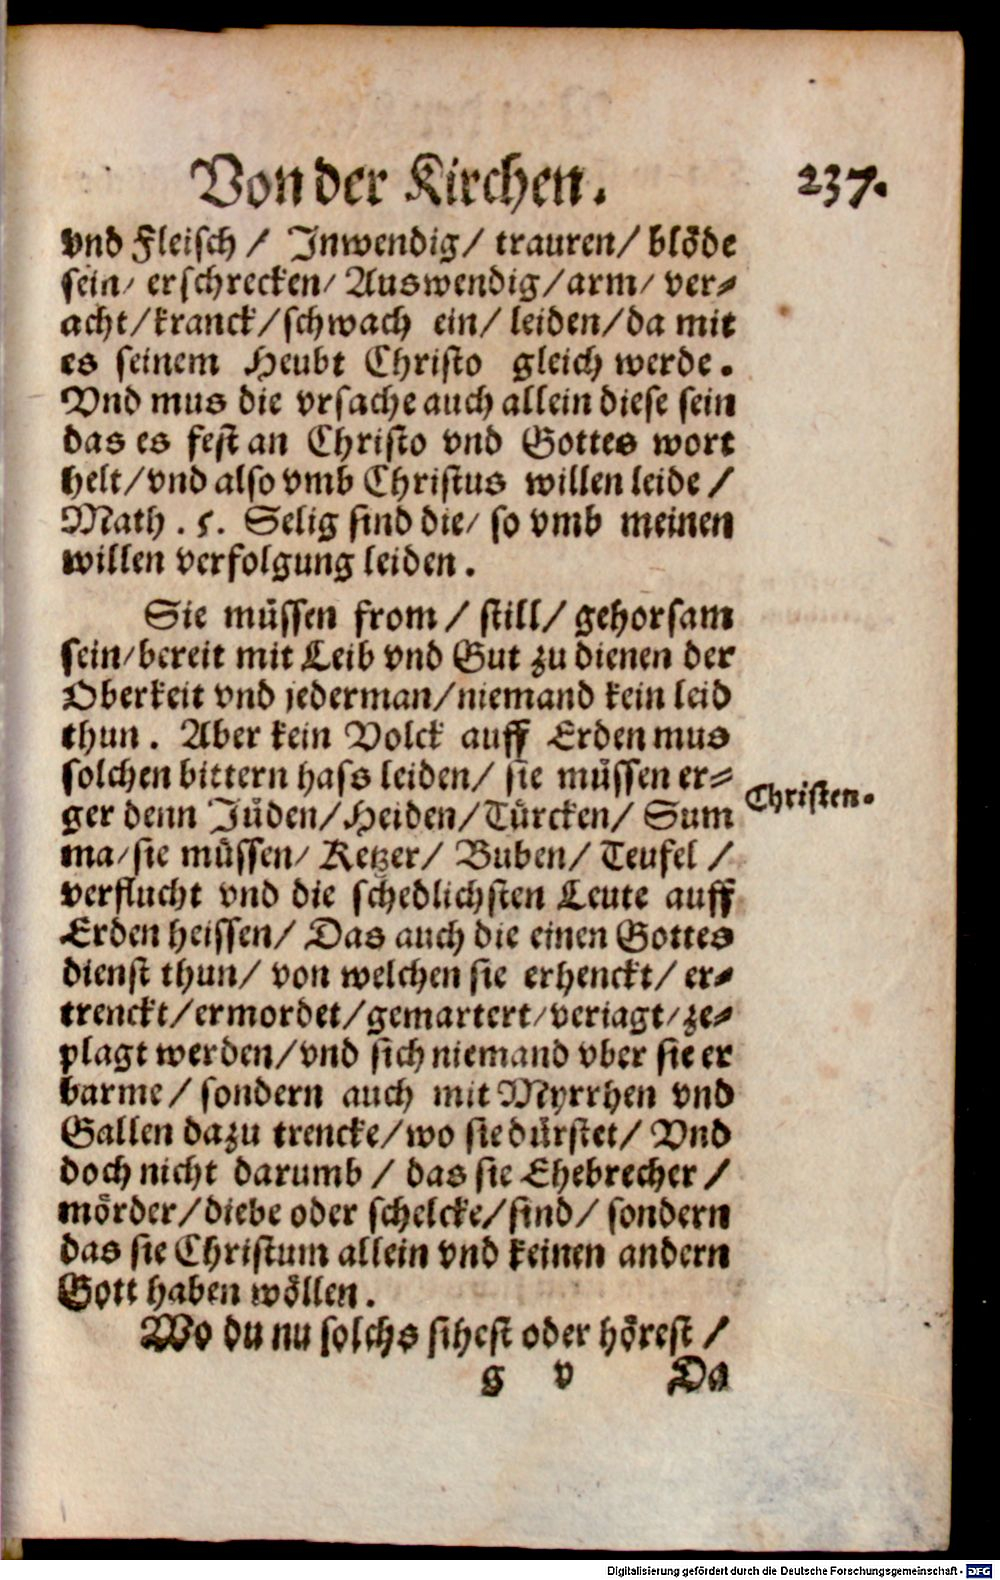 Von der Kirchen. 237.
vnd Fleisch / Inwendig/ trauren/ blöde
sein/ erschrecken/ Auswendig/arm/ ver⸗
acht/kranck/schwach ein/ leiden/da mit
es seinem Heubt Christo gleich werde.
Vnd mus die vrsache auch allein diese sein
das es fest an Christo vnd Gottes wort
helt/vnd also vmb Christus willen leide /
Math. 5. Selig sind die/ so vmb meinen
willen verfolgung leiden.
Sie müssen from / still/ gehorsam
sein/bereit mit Leib vnd Gut zu dienen der
Oberkeit vnd jederman/niemand kein leid
thun. Aber kein Volck auff Erden mus
solchen bittern hass leiden/ sie müssen er⸗
ger denn Jüden/Heiden/Türcken/ Sum
Christen.
ma/sie müssen/ Ketzer/ Buben/ Teufel /
verflucht vnd die schedlichsten Leute auff
Erden heissen/ Das auch die einen Gottes
dienst thun/ von welchen sie erhenckt/ er⸗
trenckt/ermordet/gemartert/veriagt/ze⸗
plagt werden/vnd sich niemand vber sie er
barme / sondern auch mit Myrrhen vnd
Gallen dazu trencke/wo sie dürstet/ Vnd
doch nicht darumb / das sie Ehebrecher /
mörder/diebe oder schelcke/sind/ sondern
das sie Christum allein vnd keinen andern
Gott haben wöllen.
Wo du nu solchs sihest oder hörest /
g v Da
Digitalisierung gefördert durch die Deutsche Forschungsgemeinschaft - DFG